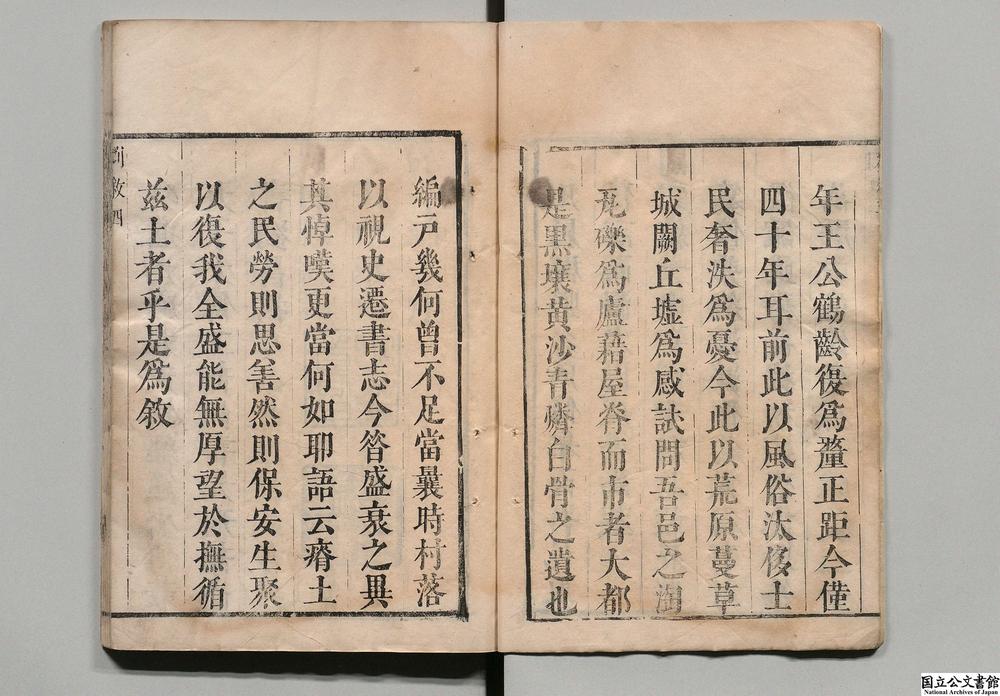 年王公鶴齡復爲釐正距今僅
四十年耳前此以風俗汰侈士
民奢泆爲憂今此以荒原蔓草
城闕丘墟爲感試問吾邑之
瓦礫爲廬藉屋脊而市者大都
是黒壤黄沙青燐白骨之遺也
編戸幾何曾不足當曩時村落
以視史遷書志今昔盛衰之異
其悼嘆更當何如耶語云瘠土
之民勞則思善然則保安生聚
以復我全盛能無厚望於撫循
兹土者乎是爲敘
敘四
国立公文書館
National Archives of Japan